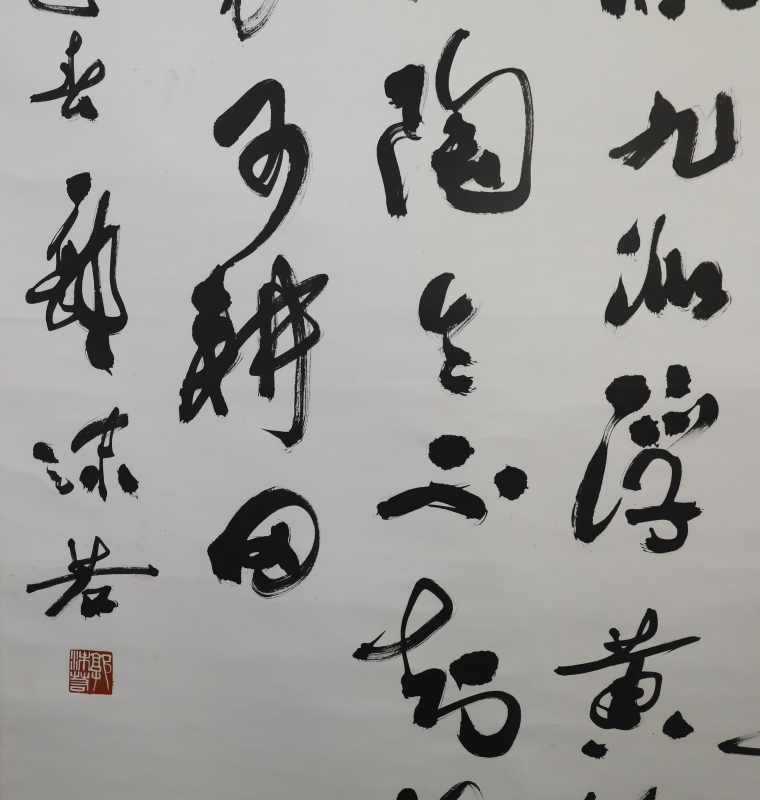 九派浮黄
陶令不知
可耕田
春 郭沫若
郭沫若